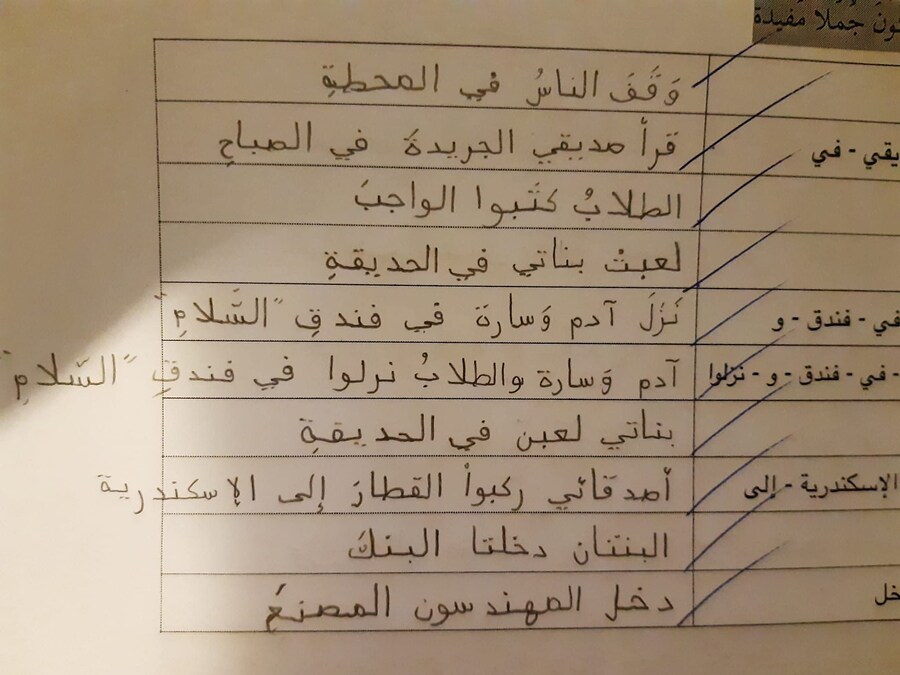 كون جُمَلًا مُفيدة
وَقَفَ الناسُ في المحطةِ
يقي - في
قرأ صديقي الجريدةَ في الصباحِ
الطلابُ كتَبوا الواجبَ
لعبتْ بناتي في الحديقةِ
في - فندق - و
نَزَلَ آدم وَسارة في فندقِ "السَّلامِ"
- في - فندق - و - نزلوا
آدم وَسارة والطلابُ نزلوا في فندقِ "السَّلامِ"
بناتي لعبن في الحديقةِ
الإسكندرية - إلى
أصدقائي ركبوا القطارَ إلى الإسكندرية
البنتان دخلتا البنكَ
خل
دخل المهندسون المصنعَ